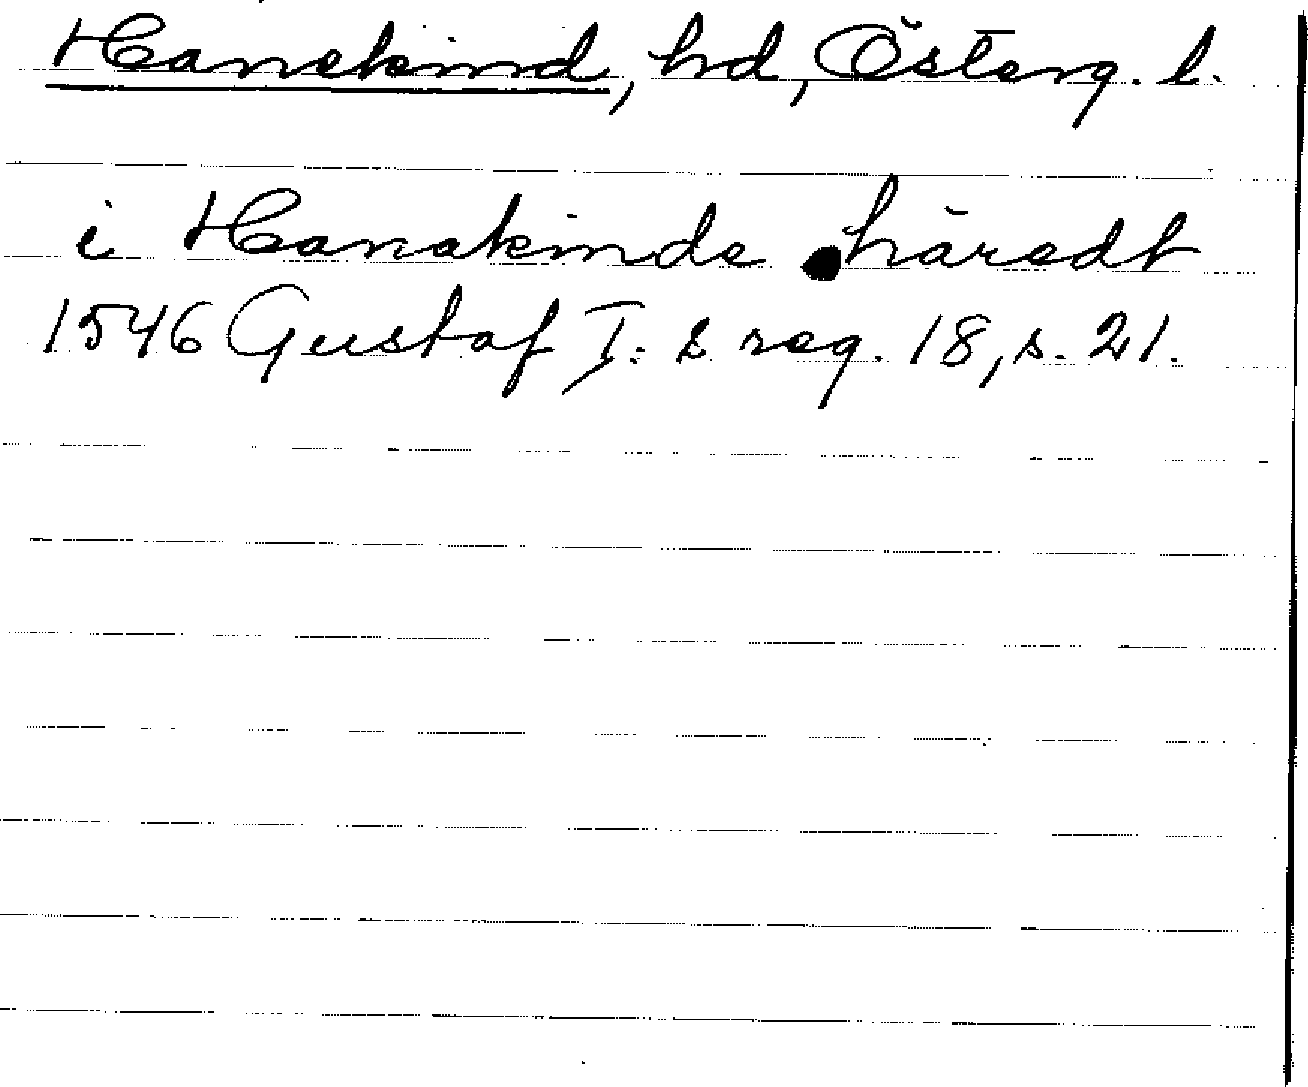 Hanekind, hd, Österg. l.
i Hanakinde häredt
1546 Gustaf I: s reg. 18, s. 21.